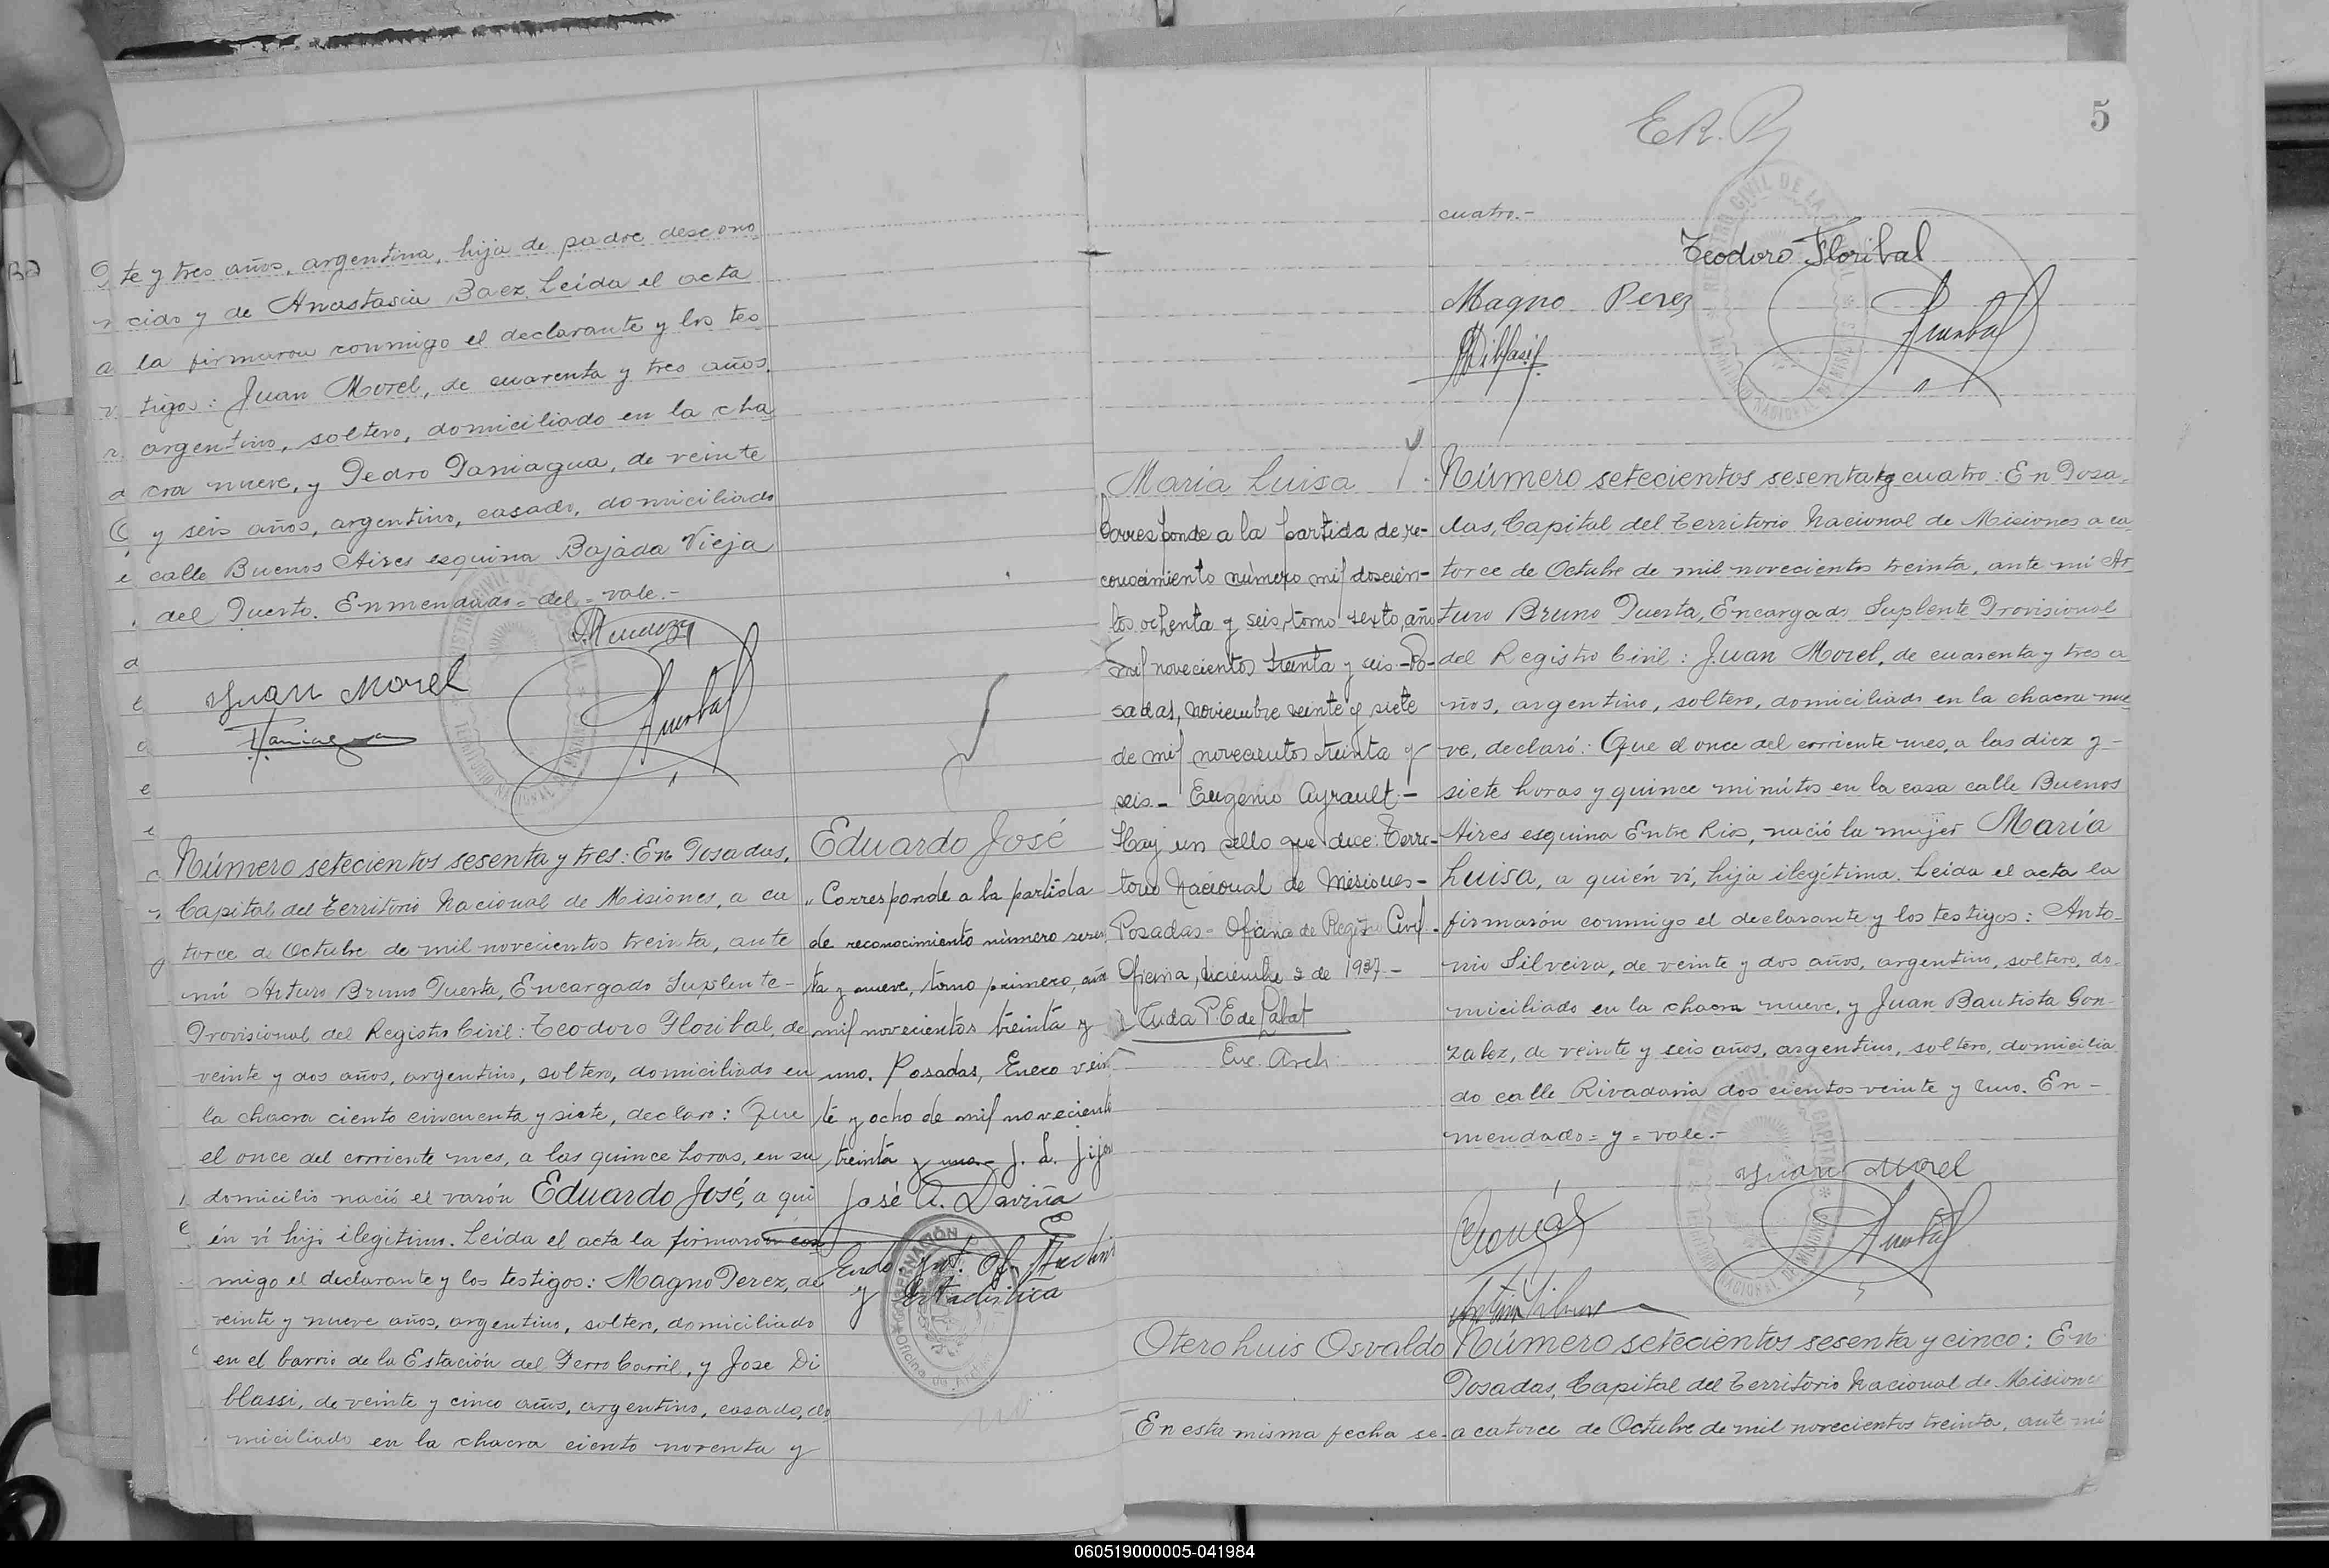 te y tres años, argentina, hija de padre descono
cido y de Anastasia Baez. Leída el acta
la firmaron conmigo el declarante y los tes
tigos: Juan Morel, de cuarenta y tres años,
argentino, soltero, domiciliado en la cha
cra nueve, y Pedro Paniagua, de veinte
y seis años, argentino, casado, domiciliado
calle Buenos Aires esquina Bajada Vieja
del Puerto. Enmendado=del=vale.-
Juan Morel
Número setecientos sesenta y tres: En Posadas,
Capital del Territorio Nacional de Misiones, a ca
torce de Octubre de mil novecientos treinta, ante
mí Arturo Bruno Puerta, Encargado Suplente-
Provisional del Registro Civil: Teodoro Floribal, de
veinte y dos años, argentino, soltero, domiciliado en
la chacra ciento cincuenta y siete, declaro: Que
el once del corriente mes, a las quince horas, en su
domicilio nació el varón Eduardo José, a qui
én ví hijo ilegítimo. Leída el acta la firmaron con
migo el declarante y los testigos: Magno Perez, de
veinte y nueve años, argentino, soltero, domiciliado
en el barrio de la Estación del Ferro Carril, y Jose Di
blassi, de veinte y cinco años, argentino, casado, do
miciliado en la chacra ciento noventa y
Eduardo José
"Corresponde a la partida
de reconocimiento número sesen
ta y nueve, tomo primero, año
mil novecientos treinta y
uno. Posadas, Enero vein
te y ocho de mil novecient
treinta y uno.-
José A. Daviña
y Estadística
5
cuatro.-
Teodoro Floribal
Magno Perez
María Luisa
Corresponde a la partida de re-
conocimiento número mil doscien-
tos ochenta y seis, tomo sexto, año
mil novecientos treinta y seis.-Po-
sadas, noviembre veinte y siete
de mil novecientos treinta y
seis.- Eugenio Ayrault.-
Hay un sello que dice: Terri-
torio Nacional de Misiones-
Posadas- Oficina de Registro Civil.-
Oficina, diciembre 2 de 1937.-
Enc. Arch.
Número setecientos sesenta y cuatro: En Posa-
das, Capital del Territorio Nacional de Misiones a ca
torce de Octubre de mil novecientos treinta, ante mí Ar
turo Bruno Puerta, Encargado Suplente Provisional
del Registro Civil: Juan Morel, de cuarenta y tres a
ños, argentino, soltero, domiciliado en la chacra nue
ve, declaró: Que el once del corriente mes, a las diez y-
siete horas y quince minútos en la casa calle Buenos
Aires esquina Entre Rios, nació la mujer María
Luisa, a quién ví, hija ilegítima. Leída el acta la
firmarón conmigo el declarante y los testigos: Anto-
nio Silveira, de veinte y dos años, argentino, soltero, do-
miciliado en la chacra nueve, y Juan Bautista Gon-
zalez, de veinte y seis años, argentino, soltero, domicilia
do calle Rivadavia dos cientos veinte y uno. En-
mendado=y=vale.-
Juan Morel
Otero Luis Osvaldo
En esta misma fecha se
Número setecientos sesenta y cinco: En
Posadas, Capital del Territorio Nacional de Misiones
a catorce de Octubre de mil novecientos treinta, ante mí
060519000005-041984